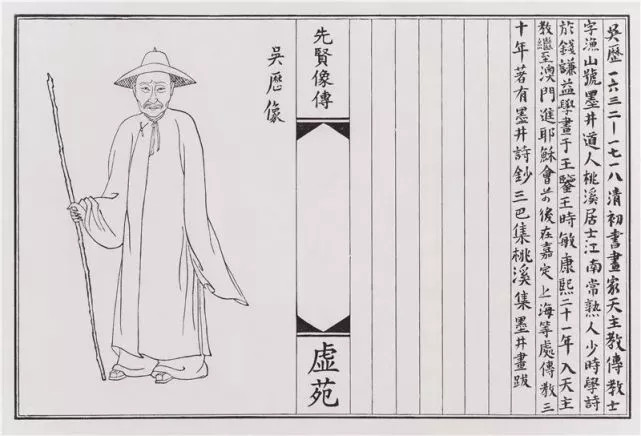 吳歷 一六三二—一七一八清初書畫家天主教傳教士
字漁山號墨井道人桃溪居士江南常熟人少時學詩
於錢謙益學畫于王鑒王時敏康熙二十一年入天主
教繼至澳門進耶穌會前後在嘉定上海等處傳教三
十年著有墨井詩鈔三巴集桃溪集墨井畫跋
先賢像傳
虛苑
吳歷像